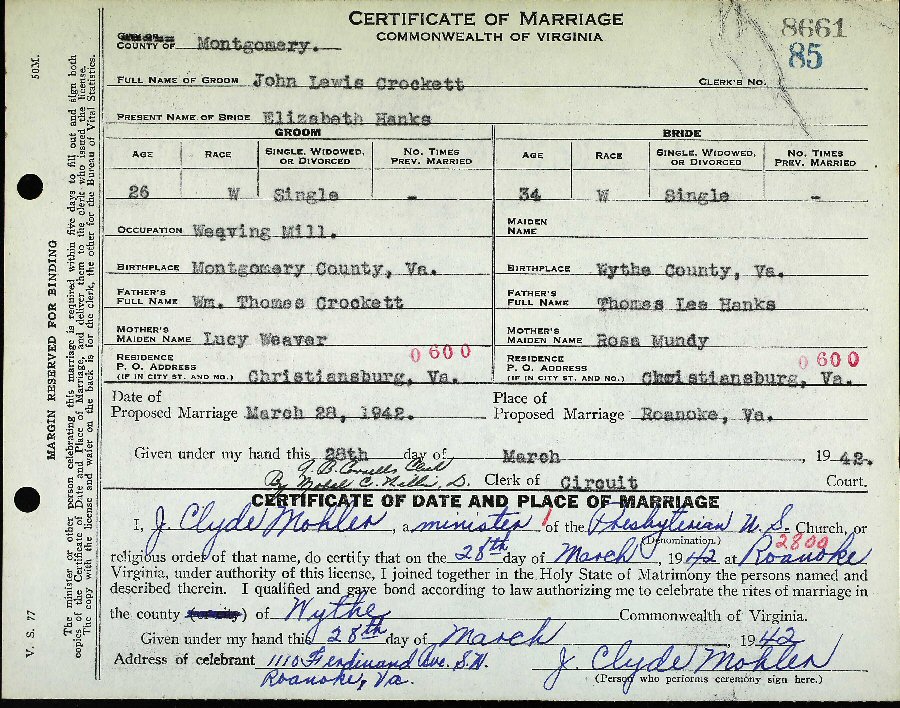 CERTIFICATE OF MARRIAGE
COMMONWEALTH OF VIRGINIA
8661
85
COUNTY OF Montgomery.
FULL NAME OF GROOM John Lewis Crockett CLERK'S NO.
PRESENT NAME OF BRIDE Elizabeth Hanks
GROOM BRIDE
AGE RACE SINGLE, WIDOWED, OR DIVORCED NO. TIMES PREV. MARRIED AGE RACE SINGLE, WIDOWED, OR DIVORCED NO. TIMES PREV. MARRIED
26 W Single - 34 W Single -
OCCUPATION Weaving Mill. MAIDEN NAME
BIRTHPLACE Montgomery County, Va. BIRTHPLACE Wythe County, Va.
FATHER'S FULL NAME Wm. Thomas Crockett FATHER'S FULL NAME Thomas Lee Hanks
MOTHER'S MAIDEN NAME Lucy Weaver MOTHER'S MAIDEN NAME Rosa Mundy
0600 0600
RESIDENCE P. O. ADDRESS (IF IN CITY ST. AND NO.) Christiansburg, Va. RESIDENCE P. O. ADDRESS (IF IN CITY ST. AND NO.) Christiansburg, Va.
Date of Proposed Marriage March 28, 1942. Place of Proposed Marriage Roanoke, Va.
Given under my hand this 28th day of March, 1942.
By Mabel C. D. Clerk of Circuit Court.
CERTIFICATE OF DATE AND PLACE OF MARRIAGE
I, J. Clyde Mohler, a minister of the Presbyterian U.S. Church, or
(Denomination.) 2800
religious order of that name, do certify that on the 28th day of March, 1942 at Roanoke
Virginia, under authority of this license, I joined together in the Holy State of Matrimony the persons named and
described therein. I qualified and gave bond according to law authorizing me to celebrate the rites of marriage in
the county (or city) of Wythe Commonwealth of Virginia.
Given under my hand this 28th day of March 1942
Address of celebrant 1110 Ferdinand Ave. S.W. J. Clyde Mohler
Roanoke, Va. (Person who performs ceremony sign here.)
V. S. 77 50M.
MARGIN RESERVED FOR BINDING
The minister or other person celebrating this marriage is required within five days to fill out and sign both
copies of the Certificate of Date and Place of Marriage, and deliver them to the clerk who issued the license.
The copy with the license and wafer on the back is for the clerk, the other for the Bureau of Vital Statistics.